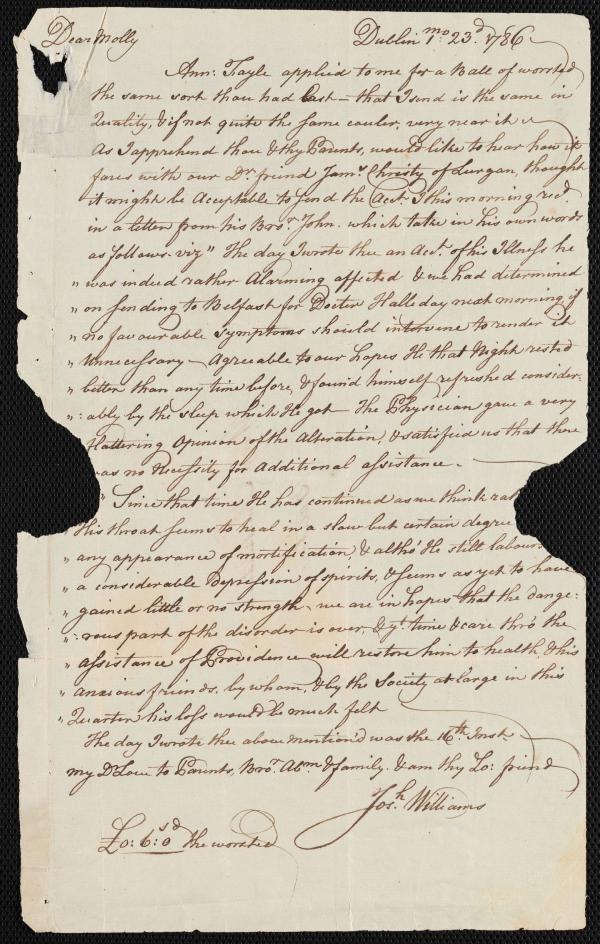 Dear Molly Dublin 1mo. 23d. 1786
Ann: Fayle applied to me for a Ball of worsted
the same sort thou had last – that I send is the same in
Quality, & if not quite the same couler, very near it
As I apprehend thou & thy Parents, would like to hear how it
fares with our Dr. friend Jams. Christy of Lurgan, thought
it might be Acceptable to send the Acct. I this morning recd.
in a letter from his Bror. John. which take in his own words
as follows. viz " The day I wrote thee an Acct. of his Illness he
" was indeed rather Alarming affected & we had determined
" on sending to Belfast for Docter Halliday next morning, if
" no favourable Symptoms should intervene to render it
" Unnecessary – Agreeable to our hopes He that Night rested
" better than any time before, & found himself refreshed consider:
" :ably by the sleep which He got – The Physician gave a very
flattering Opinion of the Alteration, & satisfied us that there
was no Necessity for Additional assistance. –
" Since that time He has continued as we think rat
His throat seems to heal in a slow but certain degree
" any appearance of mortification, & altho' He still labours
" a considerable depression of spirits, & seems as yet to have
" gained little or no strength, we are in hopes that the dange:
" :rous part of the disorder is over, & yt. time & care thro' the
" assistance of Providence will restore him to health, & his
" anxious friends, by whom, & by the Society at large in this
" Quarter his loss would be much felt
The day I wrote thee above mention'd was the 16th. Inst.
my Dr Love to Parents, Bror. Abm. & family. & am thy Lo: friend
Josh. Williams
£0: 6s: 0d the worsted